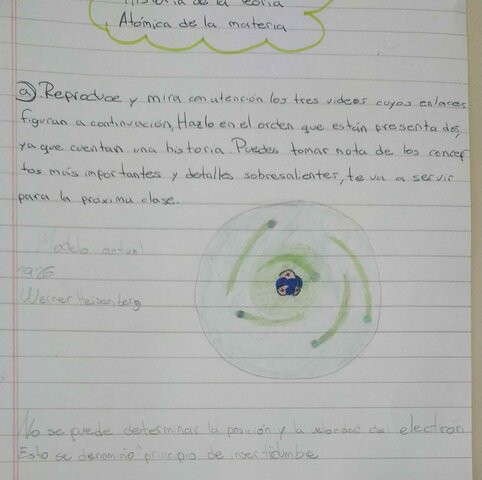 Historia de la Teoría
Atómica de la materia
a) Reproduce y mira con atención los tres videos cuyos enlaces
figuran a continuación, Hazlo en el orden que están presentados,
ya que cuentan una historia. Puedes tomar nota de los concep
tos más importantes y detalles sobresalientes, te va a servir
para la próxima clase.
Modelo actual
1926
Werner Heisenberg
No se puede determinar la posición y la velocidad del electrón
Esto se denominó principio de insertidumbe